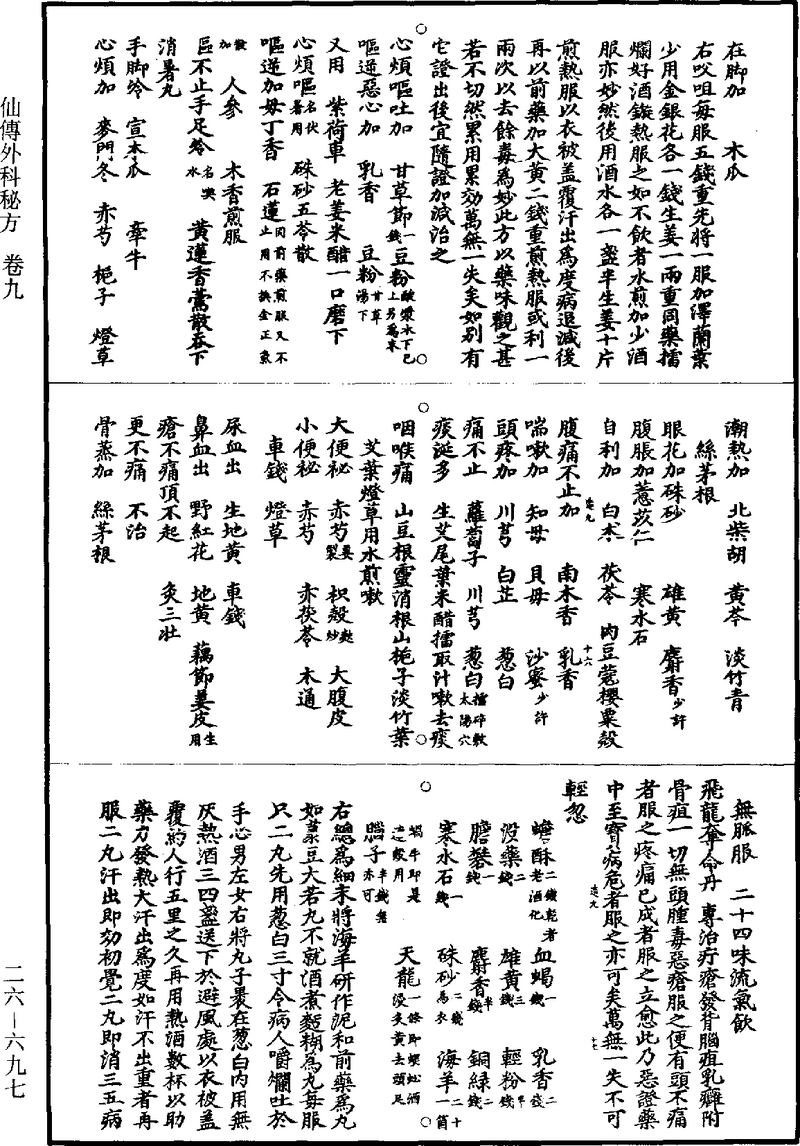 仙傳外科秘方　卷九
在脚加　木瓜
右㕮咀每服五錢重先將一服加澤蘭葉
少用金銀花各一錢生姜一兩重同藥擂
爛好酒鏇熱服之如不飲者水煎加少酒
服亦妙然後用酒水各一盞半生姜十片
煎熱服以衣被盖覆汗出爲度病退減後
再以前藥加大黃二錢重煎熱服或利一
兩次以去餘毒爲妙此方以藥味觀之甚
若不切然累用累効萬無一失矣如别有
它證出後宜隨證加減治之
心煩嘔吐加　甘草節一錢　豆粉酸漿水下已上另爲末
嘔逆惡心加　乳香　豆粉甘草湯下
又用　紫荷車　老姜米醋一口磨下
心煩嘔名伏暑用　硃砂五苓散
嘔逆加母丁香　石蓮同前藥煎服又不止用不換金正氣
散加　人參　木香煎服
區不止手足冷名喫水　黃蓮香薷散吞下
消暑丸
手脚冷　宣木瓜　牽牛
心煩加　麥門冬　赤芍　梔子　燈草
潮熱加　北柴胡　黃芩　淡竹青
絲茅根
眼花加硃砂　雄黃　麝香少許
腹脹加薏苡仁　寒水石
自利加　白朮　茯苓　肉豆蔻櫻粟殼
腹痛不止加　南木香　乳香
喘嗽加　知母　貝母　沙蜜少許
頭疼加　川芎　白芷　葱白
痛不止　蘿蔔子　川芎　葱白擂碎敷太陽穴
痰涎多　生艾尾葉米醋擂取汁嗽去痰
咽喉痛　山豆根靈消根山梔子淡竹葉
艾葉燈草用水煎嗽
大便秘　赤芍姜製　枳殼麩炒　大腹皮
小便秘　赤芍　赤茯苓　木通
車錢　燈草
尿血出　生地黃　車錢
鼻血出　野紅花　地黃　藕節姜皮生用
瘡不痛頂不起　灸三壯
更不痛　不治
骨蒸加　絲茅根
無脈服　二十四味流氣飲
飛龍奪命丹　專治疔瘡發背腦疽乳癰附
骨疽一切無頭腫毒惡瘡服之便有頭不痛
者服之疼痛已成者服之立愈此乃惡證藥
中至寶病危者服之亦可矣萬無一失不可
輕忽
蟾酥二錢乾者老酒化　血蝎一錢　乳香二錢
没藥二錢　雄黃三錢　輕粉半錢
膽礬一錢　麝香半錢　銅綠二錢
寒水石一錢　硃砂二錢爲衣　海羊二十一箇
蝸牛即是連殼用　天龍一條即蜈蚣酒浸炙黃去頭足
腦子半錢無亦可
右總爲細末將海羊研作泥和前藥爲丸
如菉豆大若丸不就酒煮麪糊爲丸每服
只二丸先用葱白三寸令病人嚼爛吐於
手心男左女右將丸子裹在葱白内用無
灰熱酒三四盞送下於避風處以衣被盖
覆約人行五里之久再用熱酒數杯以助
藥力發熱大汗出爲度如汗不出重者再
服二丸汗出即効初覺二丸即消三五病
二六—六九七